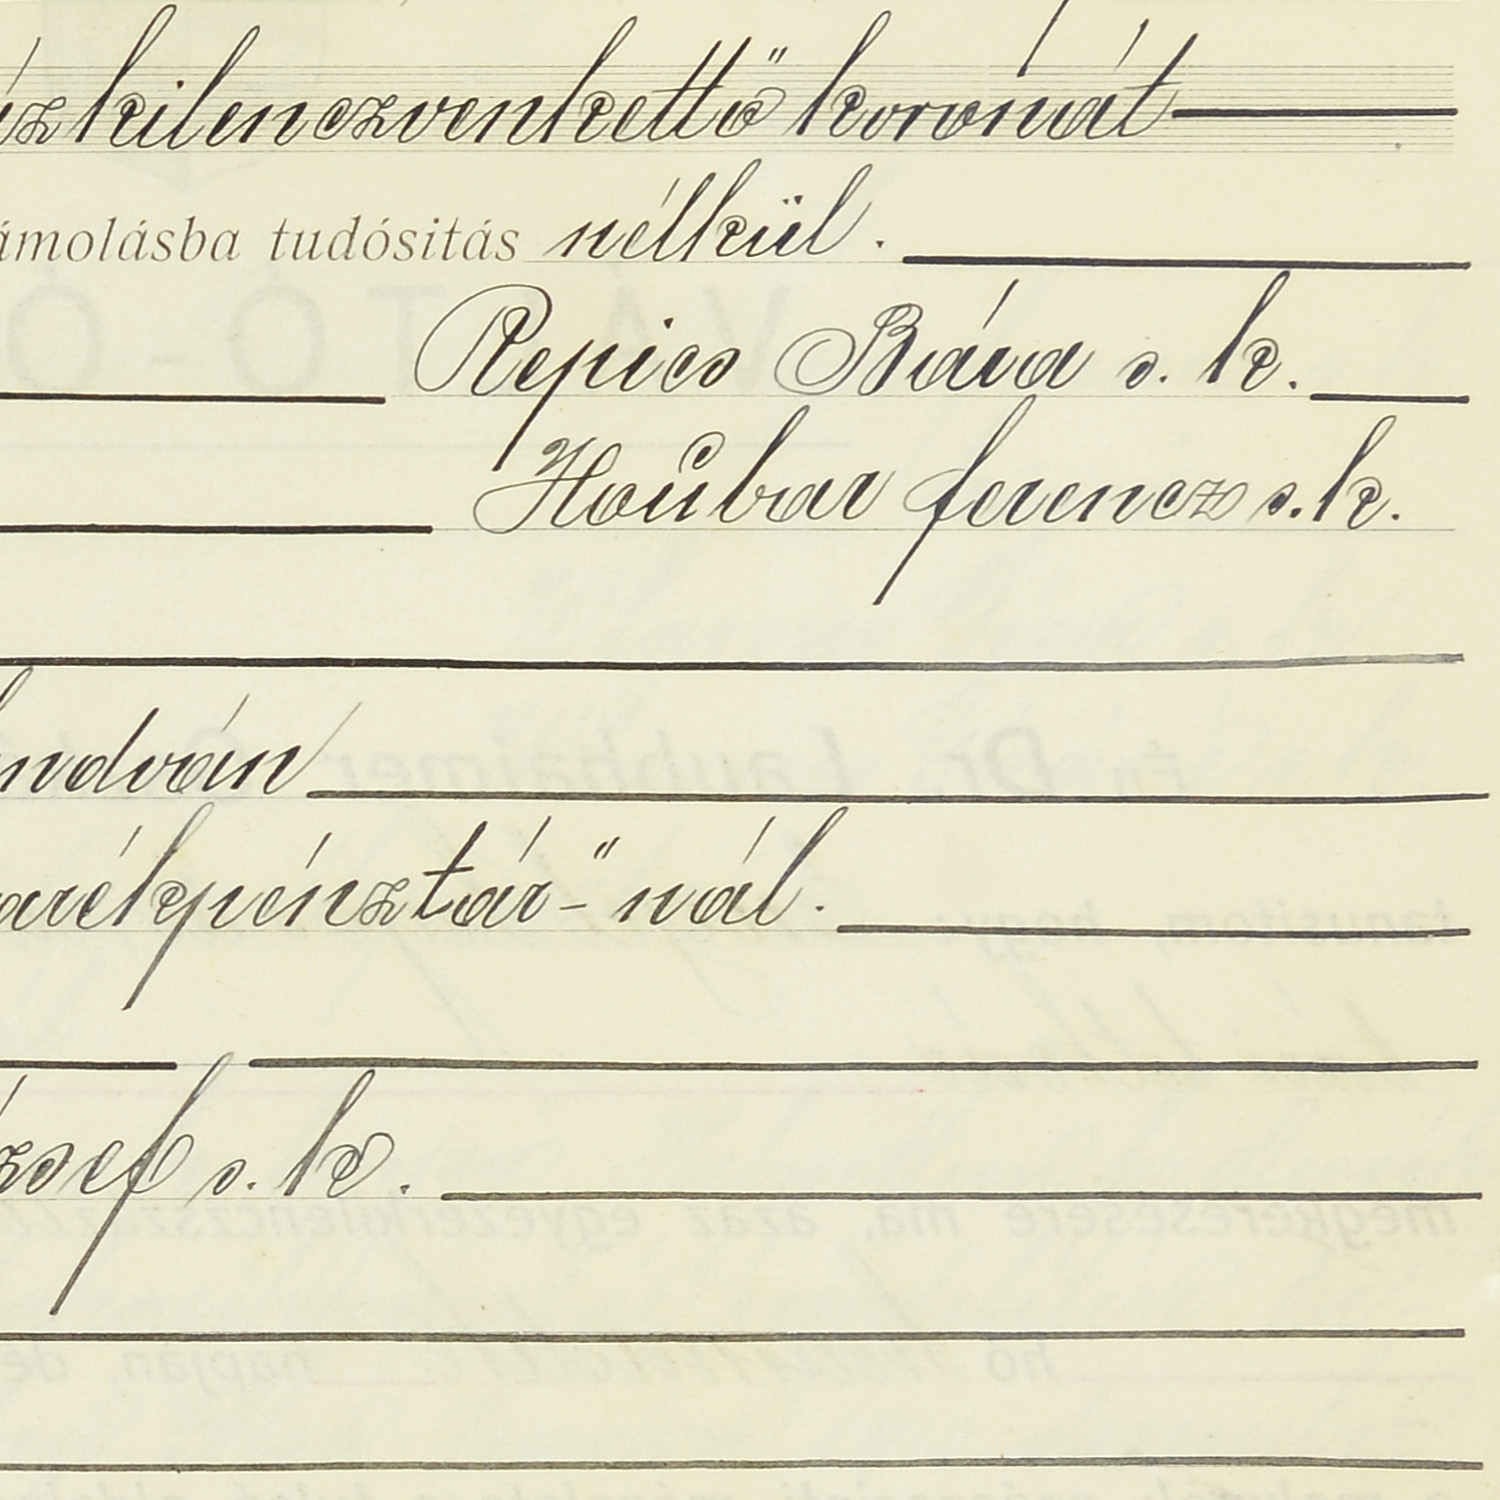 ízkilenczvenkettő koronát
ámolásba tudósitás nélkül.
Repics Bára s. k.
Houbar ferencz s. k.
ndván
arékpénztár-"nál.
ózsef s. k.